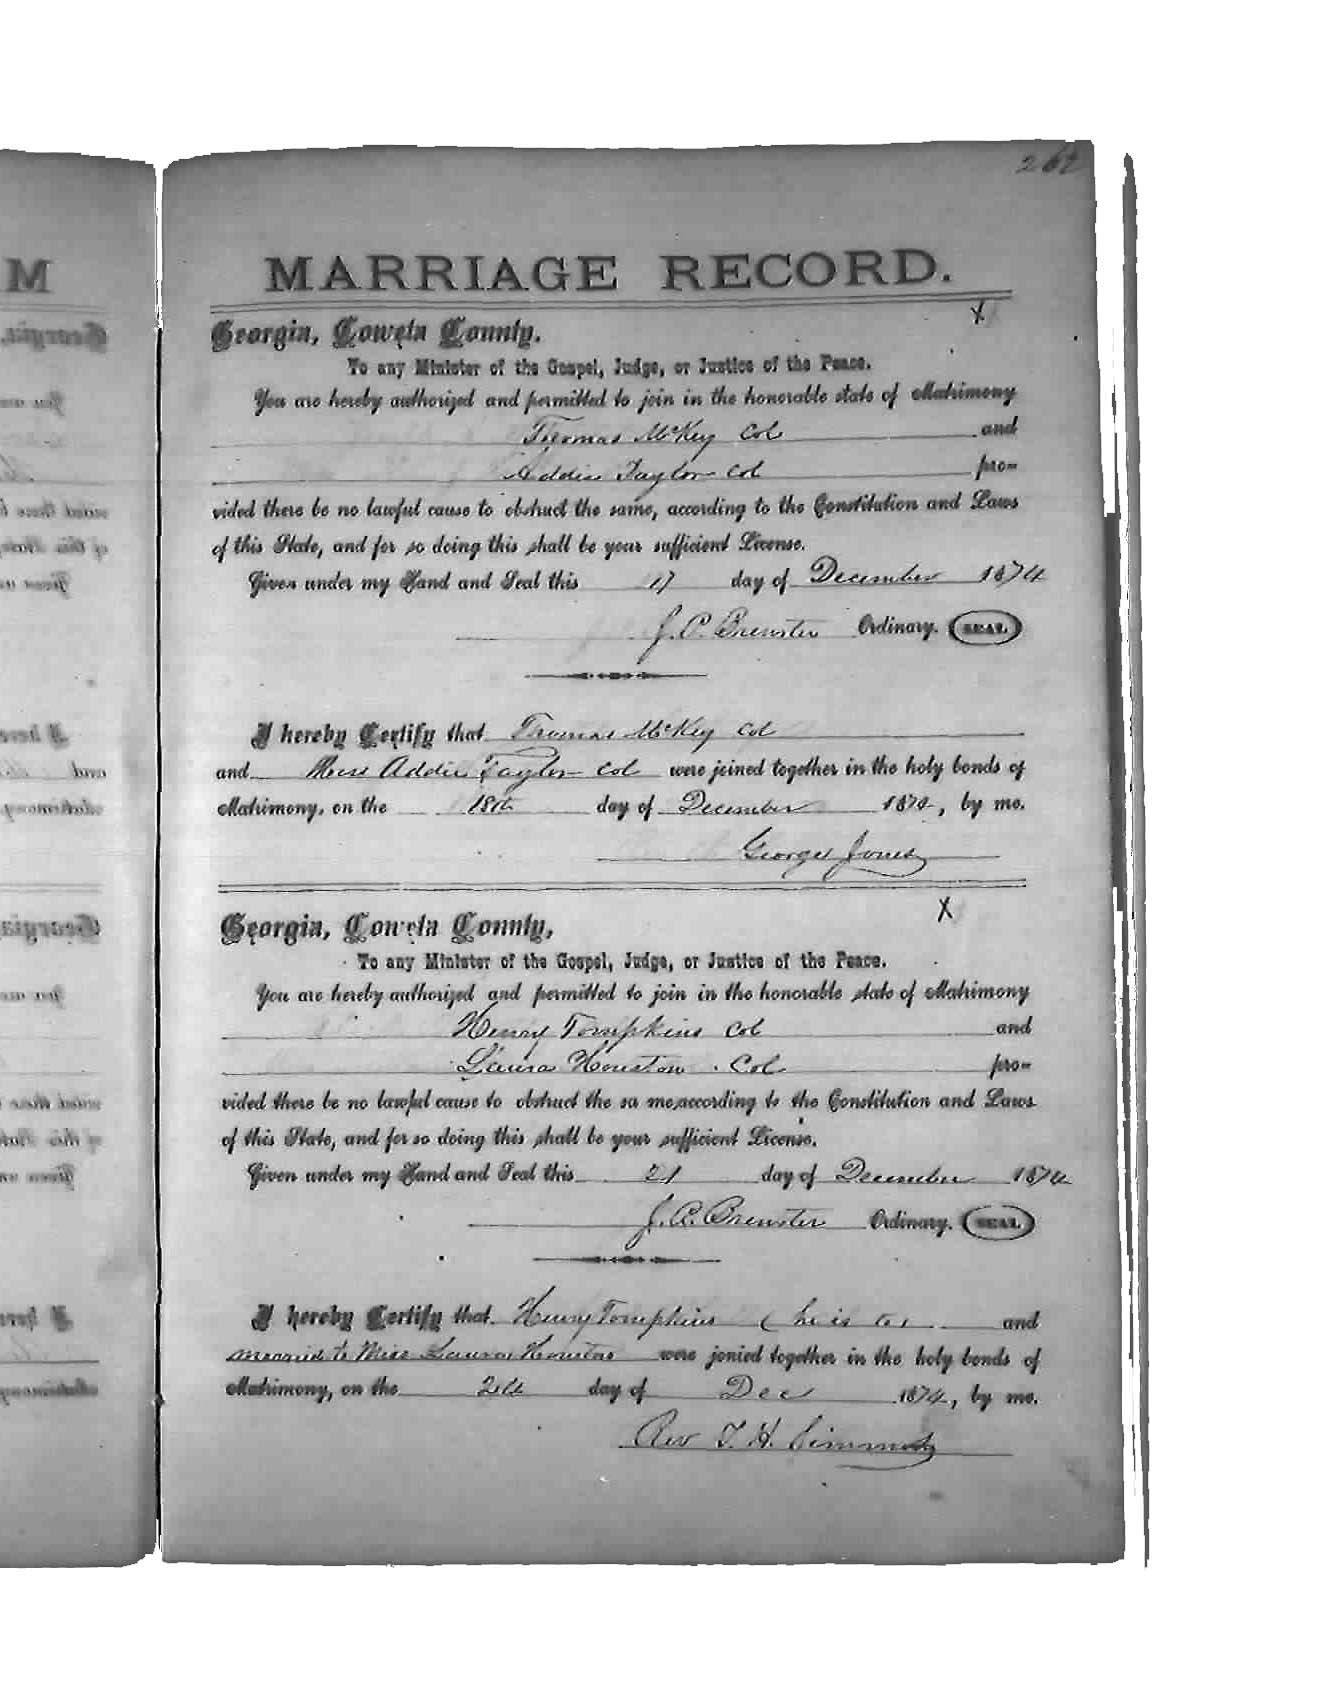 262
MARRIAGE RECORD.
X
Georgia, Coweta County.
To any Minister of the Gospel, Judge, or Justice of the Peace.
You are hereby authorized and permitted to join in the honorable state of Matrimony
Thomas McKey Col and
Addie Taylor Col pro-
vided there be no lawful cause to obstruct the same, according to the Constitution and Laws
of this State, and for so doing this shall be your sufficient License.
Given under my Hand and Seal this 17 day of December 1874
J. P. Brewster Ordinary. SEAL
I hereby Certify that Thomas McKey Col
and Miss Addie Taylor Col were joined together in the holy bonds of
Matrimony, on the 18th day of December 1874, by me.
George Jones
X
Georgia, Coweta County,
To any Minister of the Gospel, Judge, or Justice of the Peace.
You are hereby authorized and permitted to join in the honorable state of Matrimony
Henry Tompkins Col and
Laura Houston Col pro-
vided there be no lawful cause to obstruct the sa me, according to the Constitution and Laws
of this State, and for so doing this shall be your sufficient License.
Given under my Hand and Seal this 21 day of December 1874
J. P. Brewster Ordinary. SEAL
I hereby Certify that Henry Tompkins ( he is and
married to Miss Laura Houston were jonied together in the holy bonds of
Matrimony, on the day of Dec 1874, by me.
Rev T. H. Simmons